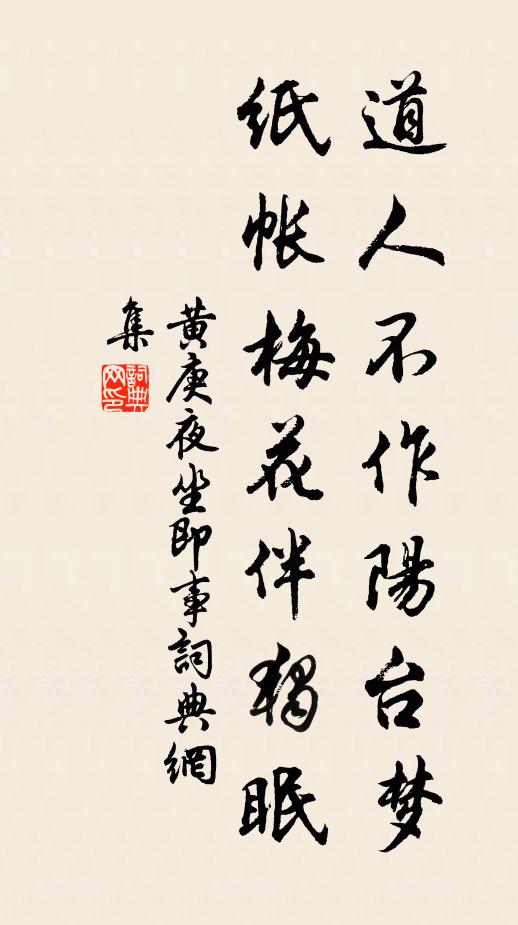 道人不作陽台梦
紙帐梅花伴独眠
黄庚夜坐即事詞典網
集
詞典網印